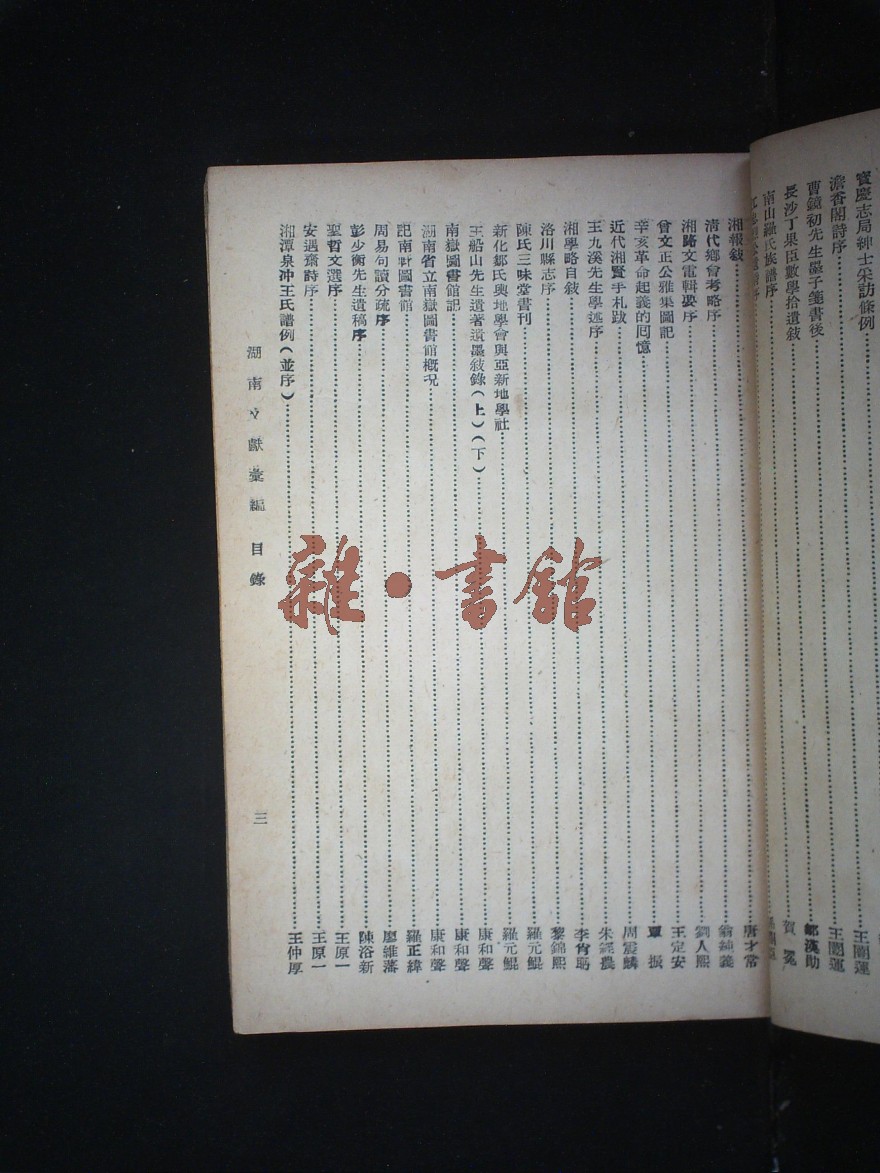 寶慶志局紳士采訪條例……王闓運
澹香閣詩序……王闓運
曹鏡初先生墨子箋書後……鄒漢勛
長沙丁果臣數學拾遺敍……賀
南山羅氏族譜序
湘報敍……唐才常
清代鄉會考略序……翁純義
湘路文電輯要序……劉人熙
曾文正公雅集圖記……王定安
辛亥革命起義的囘憶……覃振
近代湘賢手札跋……周震鱗
王九溪先生學述序……朱經農
湘學略自敍……李肖聃
洛川縣志序……黎錦熙
陳氏三味堂書刊……羅元鯤
新化鄒氏輿地學會與亞新地學社……羅元鯤
王船山先生遺著遺墨敍錄(上)(下)……康和聲
南嶽圖書館記……康和聲
湖南省立南嶽圖書館概况……康和聲
記南軒圖書館……羅正緯
周易句讀分疏序……廖維藩
彭少衡先生遺稿序……陳浴新
聖哲文選序……王原一
安遇齋詩序……王原一
湘潭泉沖王氏譜例(並序)……王仲厚
湖南文獻彙編 目錄
三
雜·書館